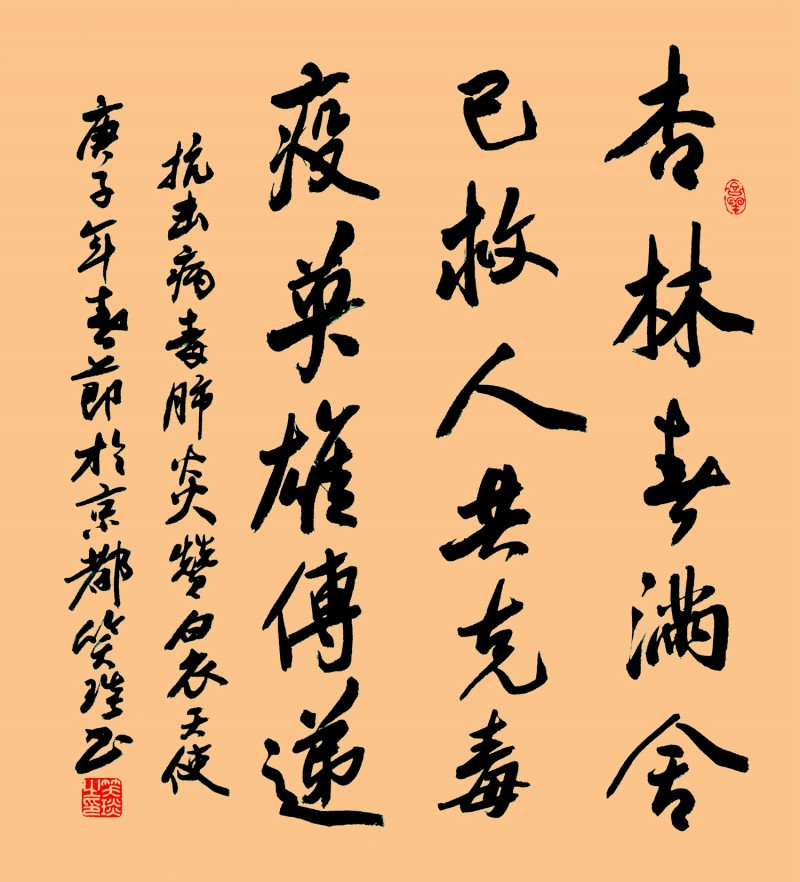 杏林春满舍
己救人共克毒
疫英雄傳递
抗击病毒肺炎赞白衣天使
庚子年春节於京都笑琰书